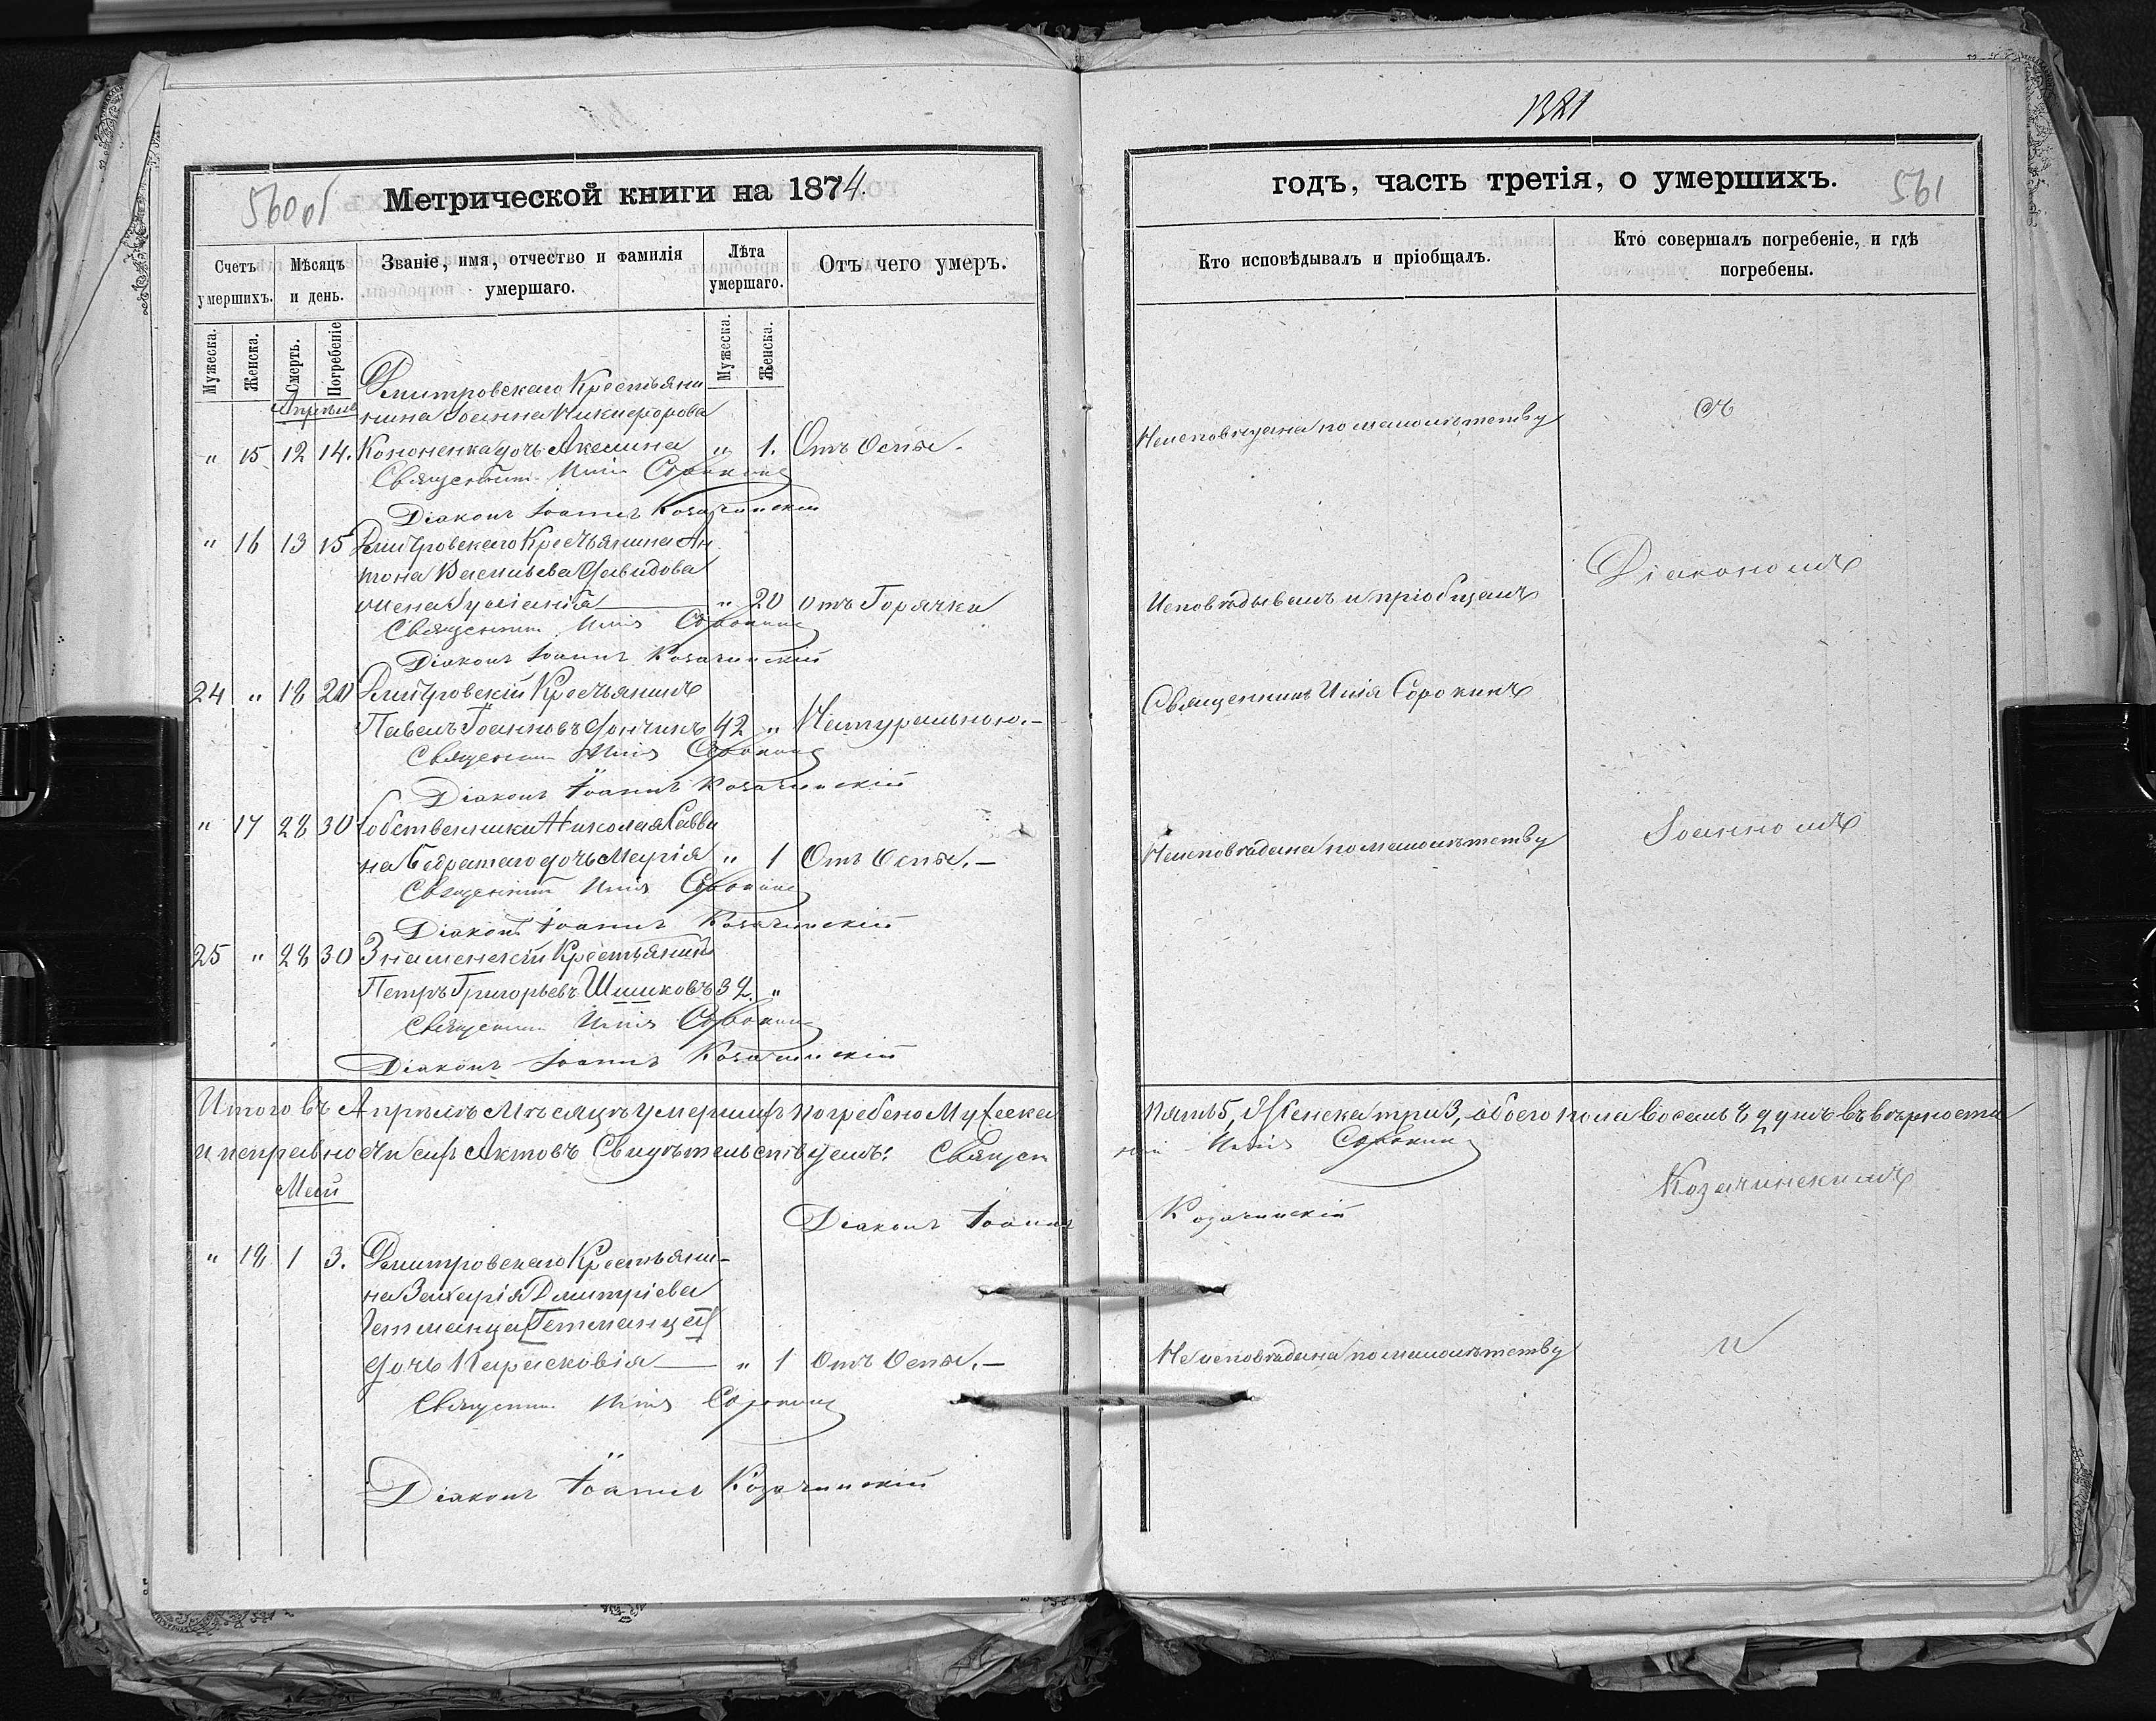 1321
560 об
Метрической книги на 1874.
годъ, часть третія, о умершихъ.
561
Счетъ умершихъ.
Мѣсяцъ и день.
Званіе, имя, отчество и фамилія умершаго.
Лѣта умершаго.
Отъ чего умеръ.
Кто исповѣдывалъ и пріобщалъ.
Кто совершалъ погребеніе, и гдѣ погребены.
Мужеска.
Женска.
Смерть.
Погребеніе
Мужеска.
Женска.
Апрѣль
Дмитровскаго Крестьяни
нина Іоанна Никифорова
" 15 12 14. Кононенка дочь Акелина " 1. Отъ Оспы.
Неисповѣдана по малолѣтству
съ
Священникъ Илія Сорокинъ
Діаконъ Іоаннъ Козачинскій
" 16 13 15 Дмитровскаго Крестьянина Ан
тона Васильева Давидова
жена Іуліанія " 20 отъ Горячки
Исповѣдывалъ и пріобщалъ
Діакономъ
Священникъ Илія Сорокинъ
Діаконъ Іоаннъ Козачинскій
24 " 18 20 Дмитровскій Крестьянинъ
Священникъ Илія Сорокинъ
Павелъ Іоанновъ 42 " Натуральною.
Священникъ Илія Сорокинъ
Діаконъ Іоаннъ Козачинскій
" 17 28 30 Собственника Николая Савви
Іоанномъ
на дочь Марія " 1 Отъ Оспы.
Неисповѣдана по малолѣтству
Священникъ Илія Сорокинъ
Діаконъ Іоаннъ Козачинскій
25 " 28 30 Знаменскій Крестьянинъ
Петръ Григорьевъ Шишковъ 32. "
Священникъ Илія Сорокинъ
Діаконъ Іоаннъ Козачинскій
Итого въ Апрѣлѣ Мѣсяцѣ умершихъ погребено Мужеска
пять 5, Женска три 3, обоего пола восемь 8 душъ въ вѣрности
и исправности сихъ Актовъ Свидѣтельствуемъ: Священ
никъ Илія Сорокинъ
Козачинскимъ
Май
Діаконъ Іоаннъ
Козачинскій
" 18 1 3. Дмитровскаго Крестьяни-
на Захарія Дмитріева
Гетманца [Гетманца]
дочь Парасковія " 1 Отъ Оспы.
Неисповѣдана по малолѣтству
и
Священникъ Илія Сорокинъ
Діаконъ Іоаннъ Козачинскій